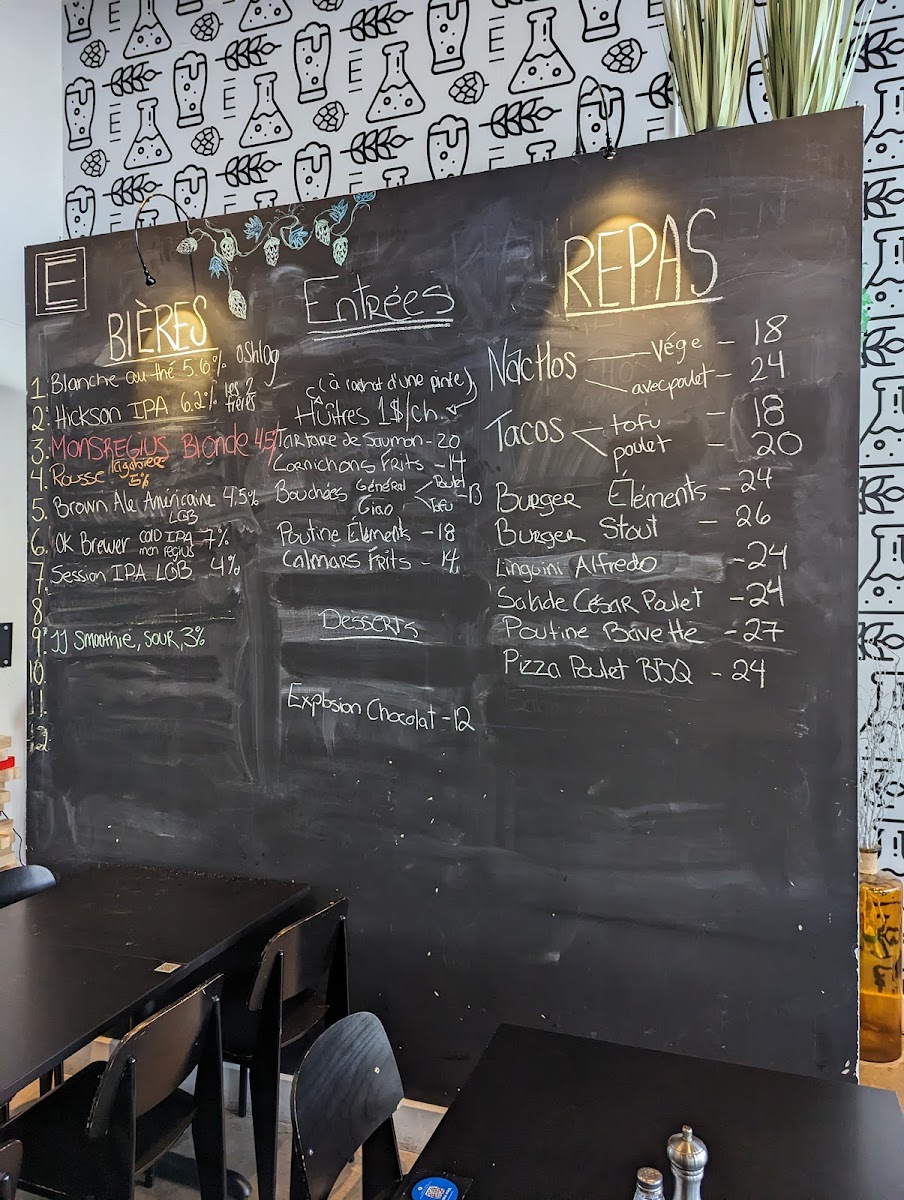 E
BIÈRES
1. Blanche au thé 5.6% oshlag
2. Hickson IPA 6.2% Les 2 frères
3. MONSREGIUS Blonde 4.5%
4. Rousse 5%
5. Brown Ale Américaine 4.5%
LGB
6. OK Brewer COLD IPA 7%
mon regius
7. Session IPA LGB 4%
8.
9. JJ Smoothie, sour, 3%
10.
11.
12.
Entrées
(à l'achat d'une pinte)
Huîtres 1$/ch.
Tartare de Saumon - 20
Cornichons Frits - 14
Bouchées Général Poulet
Ciao Tofu - 13
Poutine Éléments - 18
Calmars Frits - 14
Desserts
Explosion Chocolat - 12
REPAS
Nachos Végé - 18
avec poulet - 24
Tacos tofu - 18
poulet - 20
Burger Éléments - 24
Burger Stout - 26
Linguini Alfredo - 24
Salade César Poulet - 24
Poutine Bavette - 27
Pizza Poulet BBQ - 24